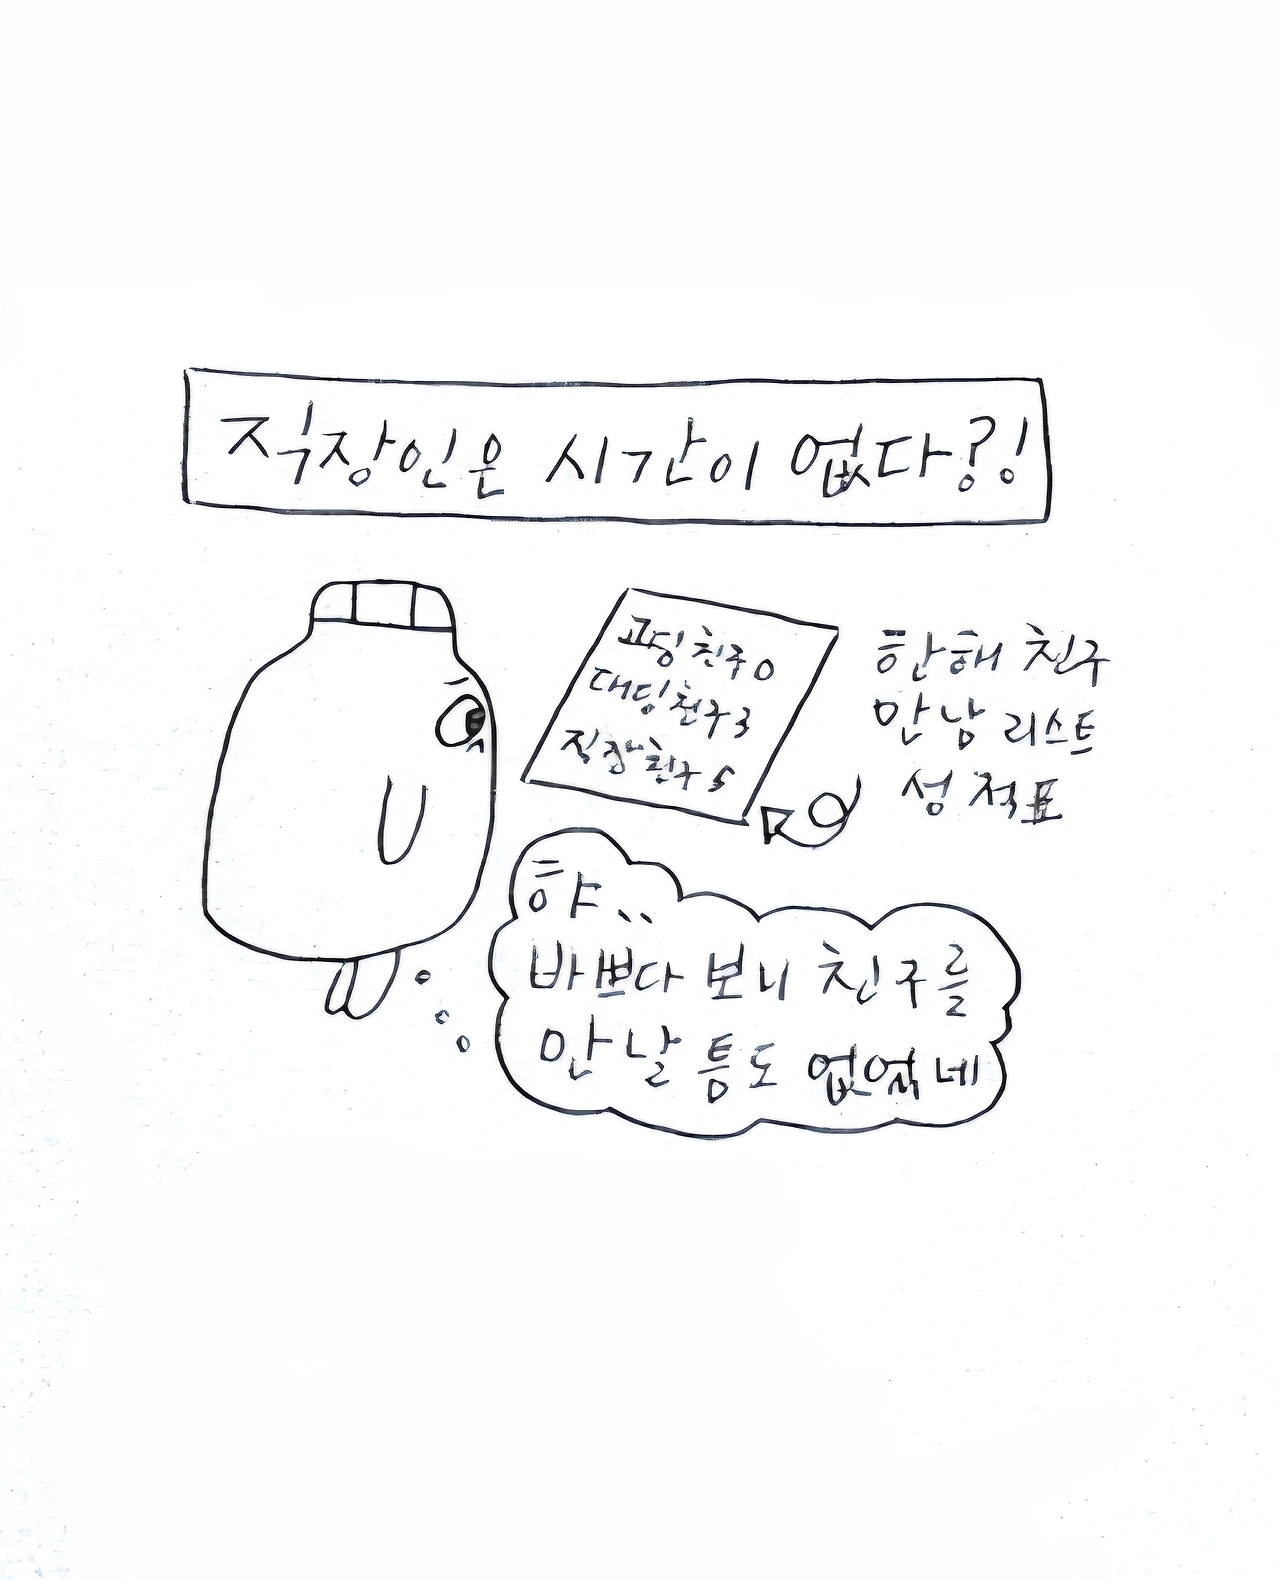 직장인은 시간이 없다?!
고딩친구 0
대딩친구 3
직장친구 5
한해 친구
만남 리스트
성적표
햐..
바쁘다 보니 친구를
만날 틈도 없었네